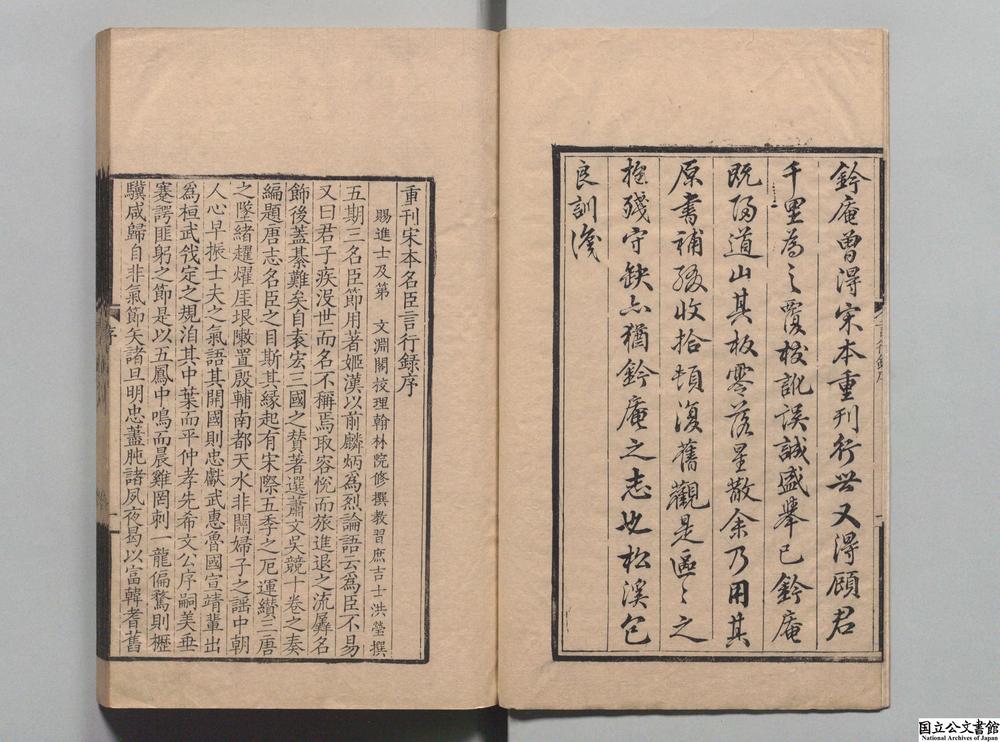 鈐庵曾得宋本重刊行世又得顧君
千里為之覆校訛誤誠盛舉已鈐庵
既歸道山其板零落星散余乃用其
原書補殘收拾頓復舊觀是區々之
抱殘守缺亦猶鈐庵之志也松溪包
良訓識
言行錄序
重刊宋本名臣言行錄序
賜進士及第 文淵閣校理翰林院修撰教習庶吉士洪瑩撰
五期三名臣節用著姬漢以前麟炳爲烈論語云爲臣不易
又曰君子疾沒世而名不稱焉取容悅而旅進退之流羼名
飾後蓋綦難矣自袁宏三國之贊著選蕭文吳競十卷之奏
編題唐志名臣之目斯其縁起有宋際五季之厄運纘三唐
之墜緒趯燿厓垠敶置殷輔南都天水非關婦子之謡中朝
人心早振士夫之氣語其開國則忠獻武惠魯國宣靖輩出
爲桓武戡定之規洎其中葉而平仲孝先希文公序嗣美垂
蹇諤匪躬之節是以五鳳中鳴而晨雞罔刺一龍偏騖則櫪
驥咸歸自非氣節矢諸旦明忠藎肫諸夙夜曷以富韓耆舊
序
国立公文書館
National Archives of Japan